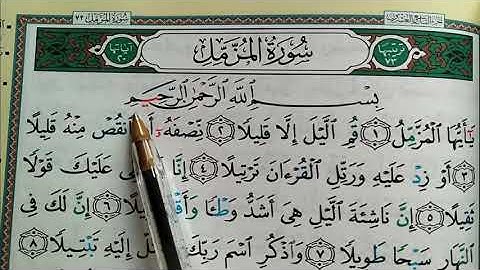 سُورَةُ المُزَّمِّلِ
آيَاتُهَا ٢٠
تَرْتِيبُهَا ٧٣
بِسْمِ ٱللَّهِ ٱلرَّحْمَٰنِ ٱلرَّحِيمِ
يَٰٓأَيُّهَا ٱلْمُزَّمِّلُ ١ قُمِ ٱلَّيْلَ إِلَّا قَلِيلًا ٢ نِّصْفَهُۥٓ ٱنقُصْ مِنْهُ قَلِيلًا
٣ أَوْ زِدْ عَلَيْهِ وَرَتِّلِ ٱلْقُرْءَانَ تَرْتِيلًا ٤ إِنَّا عَلَيْكَ قَوْلًا
ثَقِيلًا ٥ إِنَّ نَاشِئَةَ ٱلَّيْلِ هِىَ أَشَدُّ وَطْـًٔا ٦ إِنَّ لَكَ فِى
ٱلنَّهَارِ سَبْحًا طَوِيلًا ٧ وَٱذْكُرِ ٱسْمَ رَبِّكَ إِلَيْهِ تَبْتِيلًا ٨